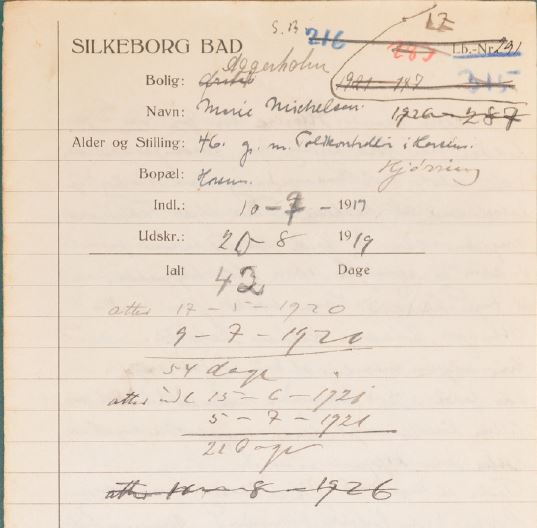 S.B 216 LZ
SILKEBORG BAD 283 Lb.-Nr. 291
Aggerholm
Bolig: 1921-187 315
Navn: Marie Michelsen. 1926-287
Alder og Stilling: 46. g. m. Toldkontrollør i Horsens.
Bopæl: Horsens. Hjørring
Indl.: 10-7-1919
Udskr.: 20-8 1919
Ialt 42 Dage
atter 17-5-1920
9-7-1920
54 dage
atter indl 15-6-1921
5-7-1921
21 Dage
atter 8-1926